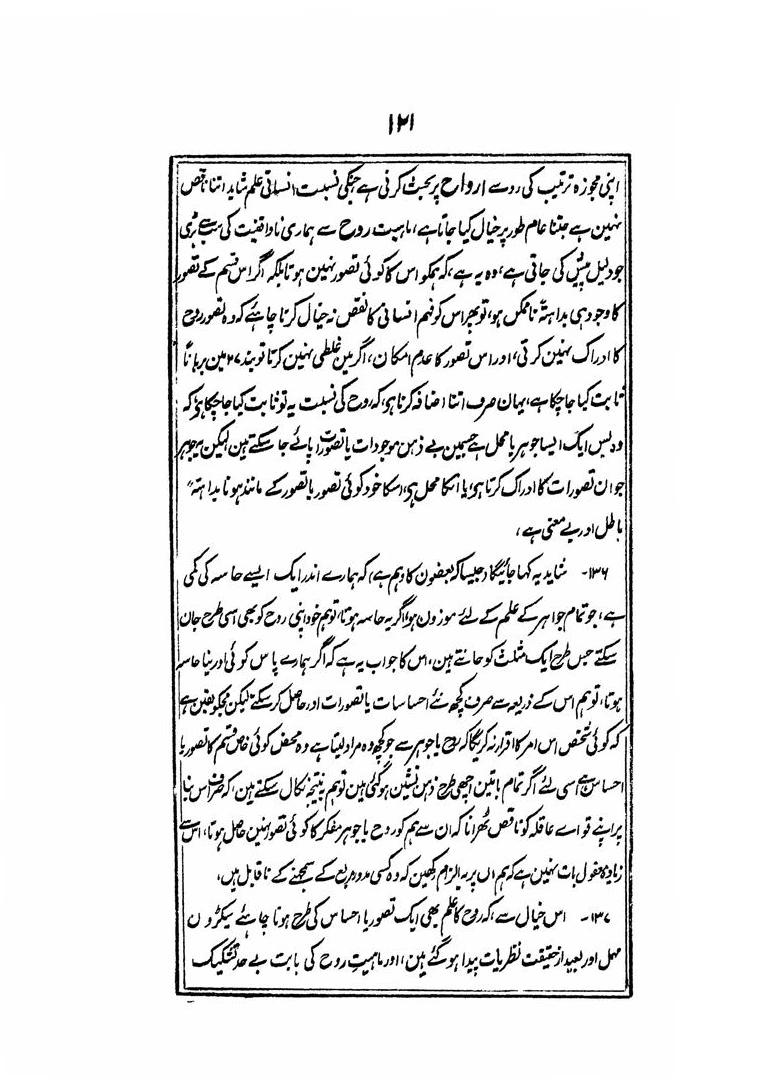 ۱۲۱
اپنی مجوزہ ترتیب کی روسے ارواح پر بحث کرنی ہے جنکی نسبت انسانی علم شاید اتنا ناقص
نہین ہے جتنا عام طور پر خیال کیا جاتا ہے، ماہیت روح سے ہماری ناواقفیت کی سب سے بڑی
جو دلیل پیش کی جاتی ہے، وہ یہ ہے، کہ ہمکو اس کا کوئی تصور نہین ہوتا بلکہ اگر اس قسم کے تصور
کا وجود ہی بداہتہً ناممکن ہو، تو پھر اس کو فہم انسانی کا نقص نہ خیال کرنا چاہئے کہ وہ تصور روح
کا ادراک نہین کرتی، اور اس تصور کا عدم امکان، اگر مین غلطی نہین کرتا تو بند ۲۷ مین برہاناً
ثابت کیا جا چکا ہے، یہان صرف اتنا اضافہ کرنا ہو، کہ روح کی نسبت یہ تو ثابت کیا جا چکا ہو کہ
وہ بس ایک ایسا جوہر یا محل ہے جسمین بے ذہن موجودات یا تصورات پائے جا سکتے ہین لیکن یہ جوہر
جو ان تصورات کا ادراک کرتا ہو، یا انکا محل ہو، اسکا خود کوئی تصور یا تصور کے مانند ہونا بداہتہً
باطل اور بے معنی ہے،
۱۳۶- شاید یہ کہا جائیگا دجیسا کہ بعضون کا وہم ہے، کہ ہمارے اندر ایک ایسے حاسہ کی کمی
ہے، جو تمام جواہر کے علم کے لئے موزون ہو، اگر یہ حاسہ ہوتا، تو ہم خود اپنی روح کو بھی اسی طرح جان
سکتے جس طرح ایک مثلث کو جانتے ہین، اس کا جواب یہ ہے کہ اگر ہمارے پاس کوئی اور نیا حاسہ
ہوتا، تو ہم اس کے ذریعہ سے صرف کچھ نئے احساسات یا تصورات اور حاصل کر سکتے لیکن مجکو یقین ہے
کہ کوئی شخص اس امر کا اقرار نہ کریگا کہ روح یا جوہر سے جو کچھ وہ مراد لیتا ہے وہ محض کوئی خاص قسم کا تصور یا
احساس ہے اسی لئے اگر تمام باتین اچھی طرح ذہن نشین ہو گئی ہین تو ہم نتیجہ نکال سکتے ہین، کہ صرف اس بنا
پر اپنے قواے عاقلہ کو ناقص ٹھرانا کہ ان سے ہم کو روح یا جوہر مفکر کا کوئی تصور نہین حاصل ہوتا، اس سے
زیادہ معقول بات نہین ہے کہ ہم ان پر یہ الزام رکھین کہ وہ کسی مدور مربع کے سمجھنے کے ناقابل ہین،
۱۳۷- اس خیال سے، کہ روح کا علم بھی ایک تصور یا احساس کی طرح ہونا چاہئے سیکڑون
مہمل اور بعید از حقیقت نظریات پیدا ہو گئے ہین، اور ماہیتِ روح کی بابت بے حد تشکیک